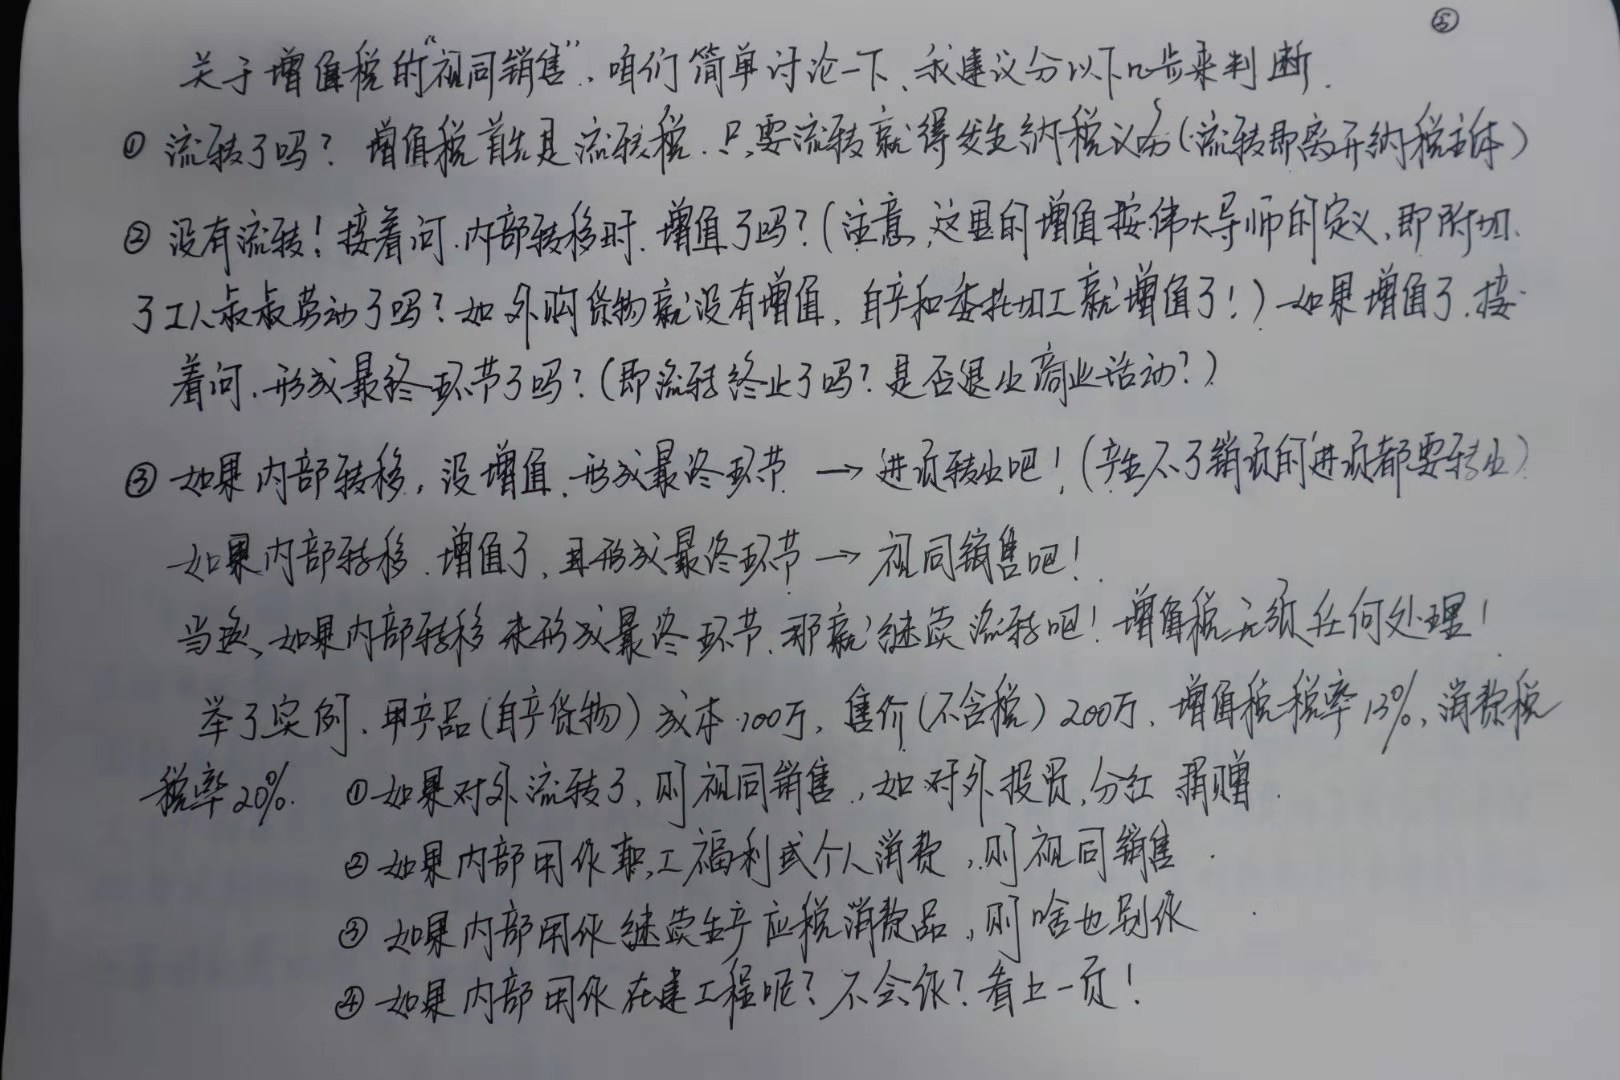 ⑤
关于增值税的“视同销售”，咱们简单讨论一下，我建议分以下几步来判断.
① 流转了吗？增值税首先是流转税.只要流转就得发生纳税义务（流转即离开纳税主体）
② 没有流转！接着问.内部转移时.增值了吗？（注意,这里的增值按伟大导师的定义,即附加
了工人叔叔劳动了吗？如外购货物就没有增值，自产和委托加工就增值了！）如果增值了.接
着问.形成最终环节了吗？（即流转终止了吗？是否退出商业活动？）
③ 如果内部转移，没增值.形成最终环节 → 进项转出吧！（产生不了销项的进项都要转出）
如果内部转移.增值了、且形成最终环节 → 视同销售吧！
当然、如果内部转移未形成最终环节.那就继续流转吧！增值税无须任何处理！
举个实例.甲产品（自产货物）成本100万，售价（不含税）200万.增值税税率13%，消费税
税率20%. ①如果对外流转了,则视同销售，如对外投资,分红 捐赠.
②如果内部用作职工福利或个人消费，则视同销售.
③如果内部用作继续生产应税消费品，则啥也别作
④如果内部用作在建工程呢？不会作？看上一页！